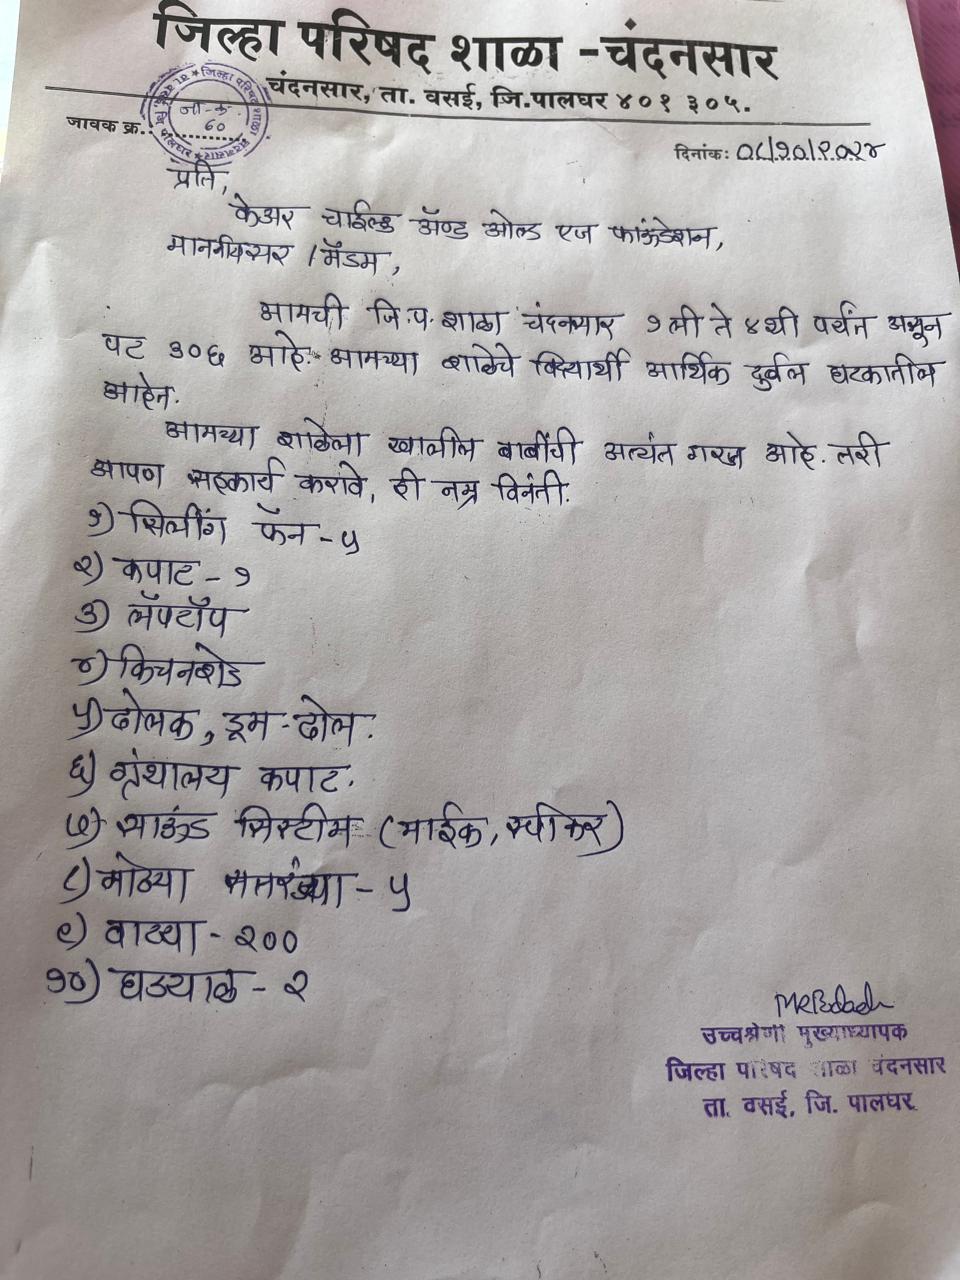 जिल्हा परिषद शाळा - चंदनसार
चंदनसार, ता. वसई, जि.पालघर ४०१ ३०५.
जावक क्र.:
जा-क्र-
६०
दिनांक: ०८/१०/२०२४
प्रति,
केअर चाईल्ड ॲण्ड ओल्ड एज फाऊंडेशन,
माननीयसर / मॅडम,
आमची जि.प. शाळा चंदनसार १ली ते ४थी पर्यंत असून
पट ३०६ आहे. आमच्या शाळेचे विद्यार्थी आर्थिक दुर्बल घटकातील
आहेत.
आमच्या शाळेला खालील बाबींची अत्यंत गरज आहे. तरी
आपण सहकार्य करावे, ही नम्र विनंती.
१) सिलींग फॅन - ५
२) कपाट - १
३) लॅपटॉप
४) किचनशेड
५) ढोलक, ड्रम - ढोल.
६) ग्रंथालय कपाट.
७) साऊंड सिस्टीम (माईक, स्पीकर)
८) मोठ्या सतरंज्या - ५
९) वाट्या - २००
१०) घड्याळ - २
उच्चश्रेणी मुख्याध्यापक
जिल्हा परिषद शाळा चंदनसार
ता. वसई, जि. पालघर